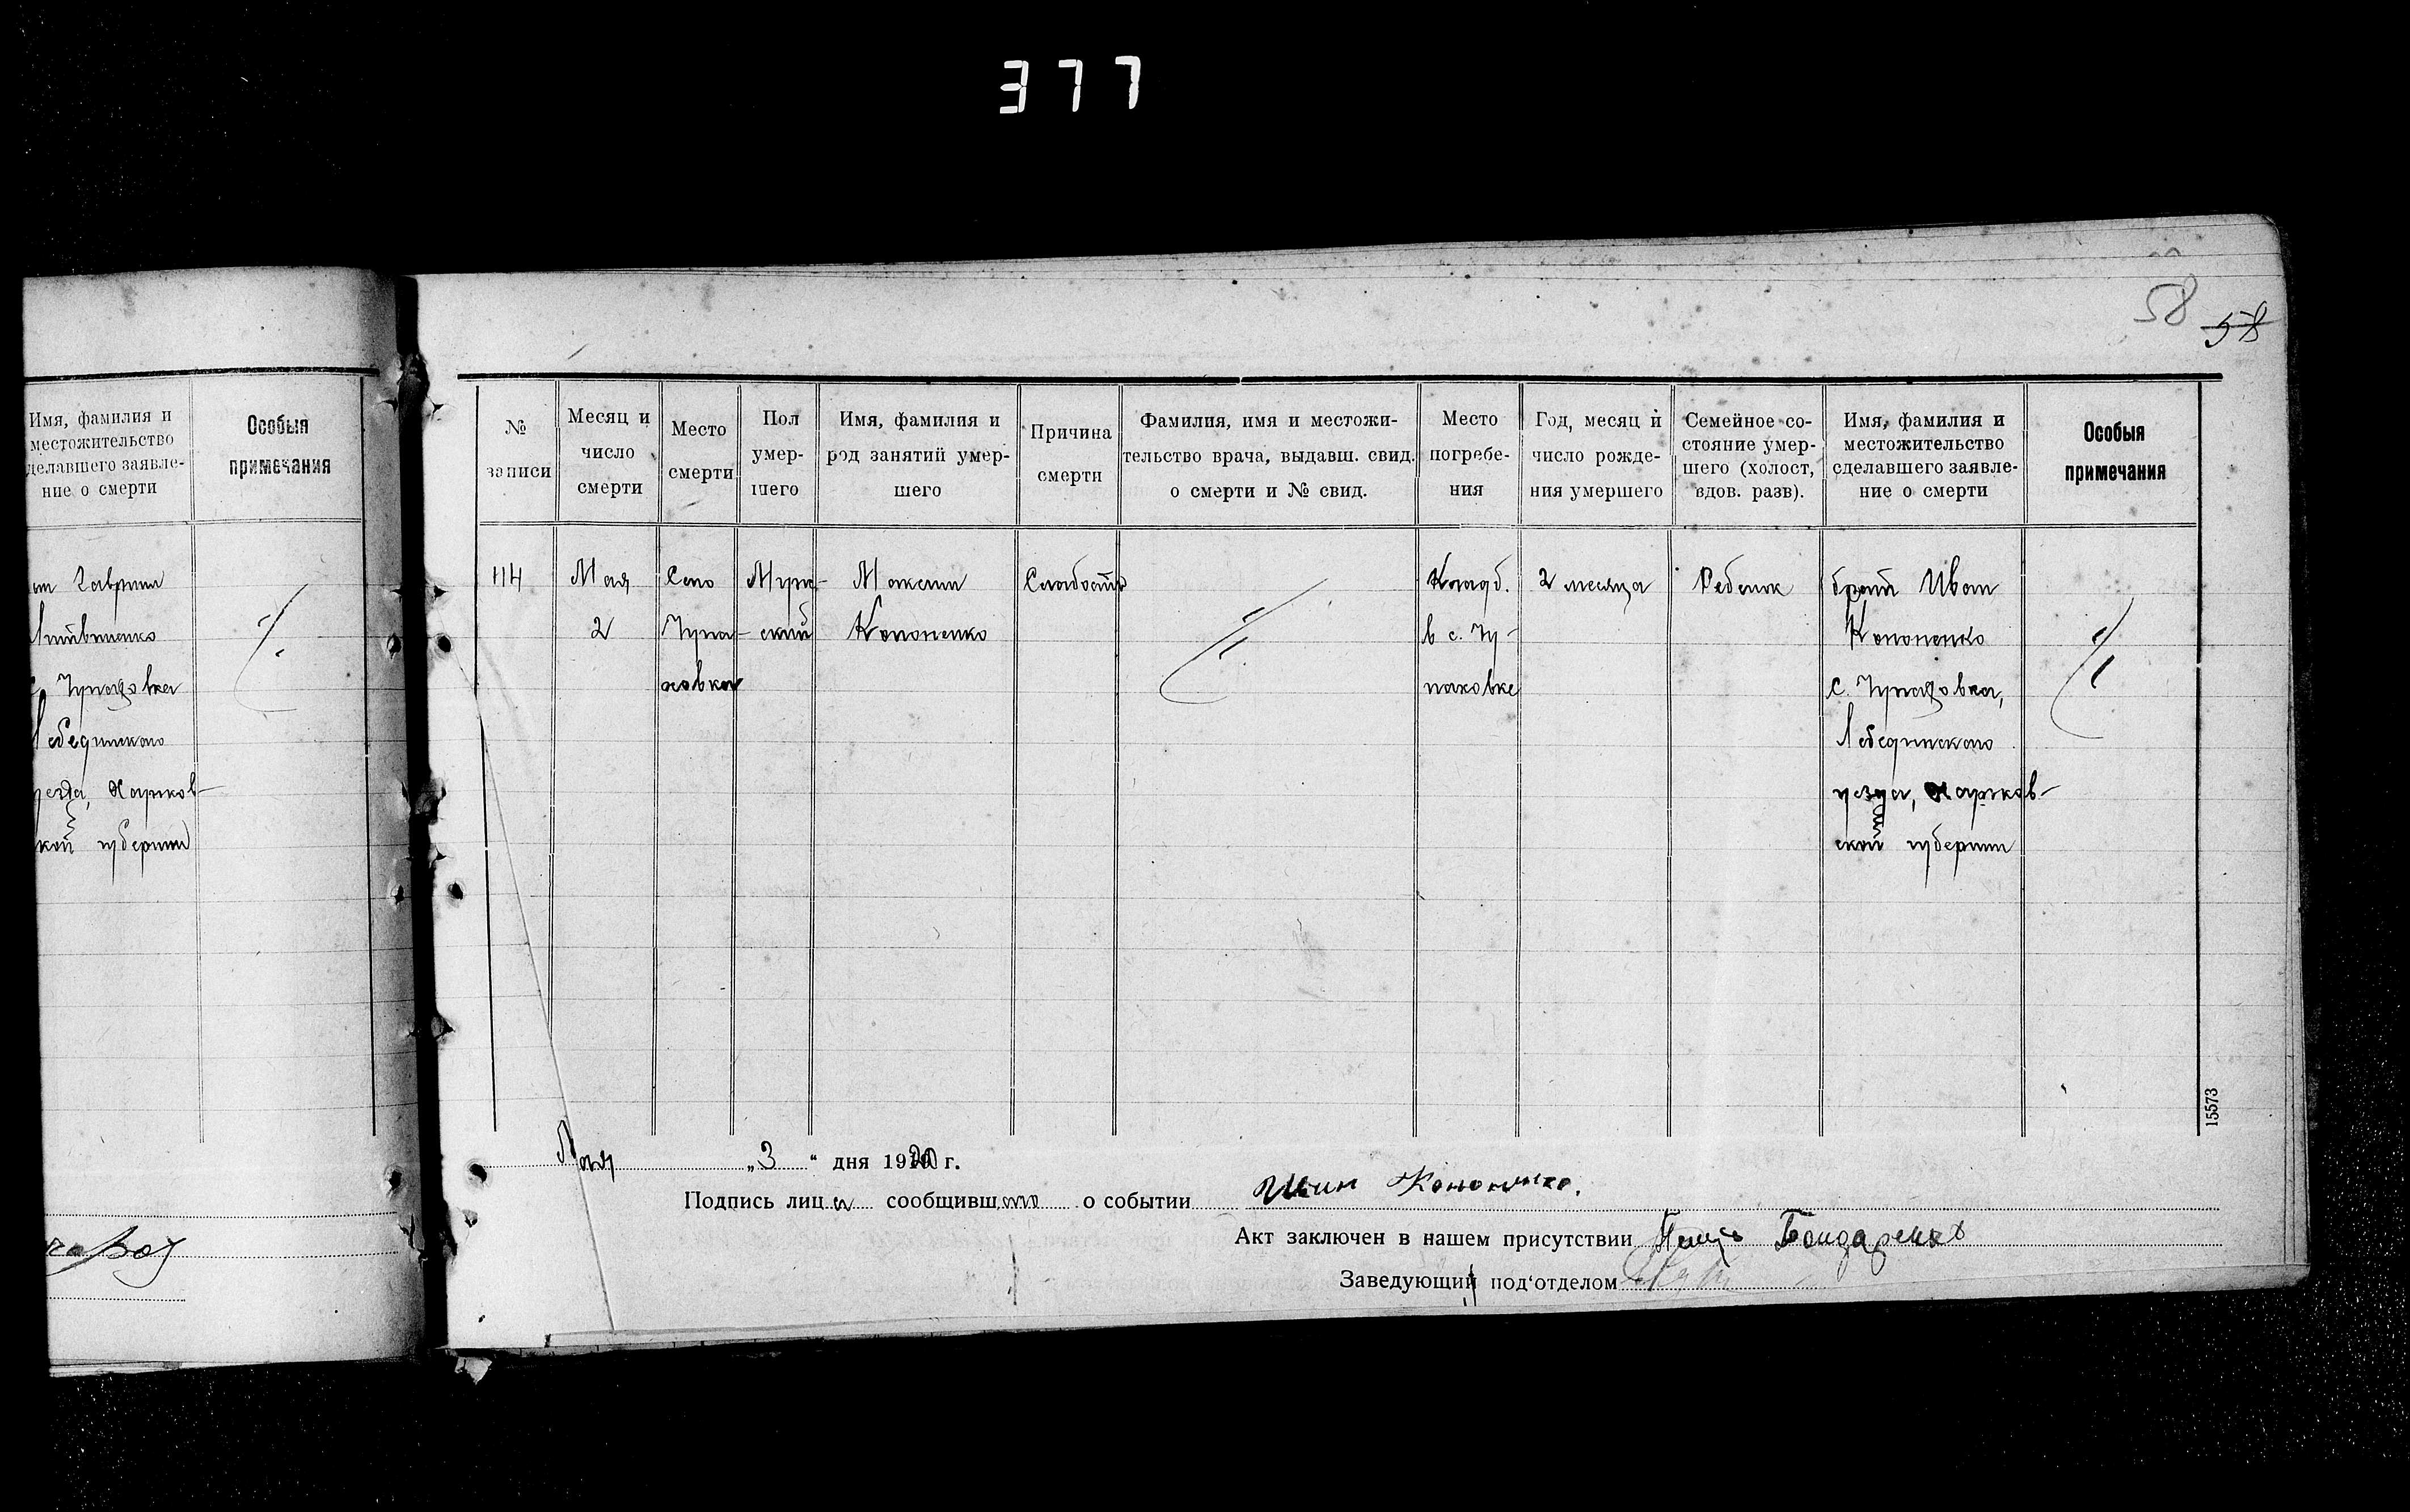 377
58
58
Имя, фамилия и
местожительство
делавшего заявле-
ние о смерти
Особыя
примечания
Гаврил
Литвиненко
Лебединского
уезда, Харьков-
кой губернии
№
записи
Месяц и
число
смерти
Место
смерти
Пол
умер-
шего
Имя, фамилия и
род занятий умер-
шего
Причина
смерти
Фамилия, имя и местожи-
тельство врача, выдавш. свид.
о смерти и № свид.
Место
погребе-
ния
Год, месяц и
число рожде-
ния умершего
Семейное со-
стояние умер-
шего (холост,
вдов. разв).
Имя, фамилия и
местожительство
сделавшего заявле-
ние о смерти
Особыя
примечания
114
Мая
2
Село
ховка
Муж-
ский
Максим
Кононенко
Слабость
Кладб.
в с.
2 месяца
Ребенок
брат Иван
Кононенко
с.
Лебединского
уезда, Харьков-
ской губернии
15573
Мая „3“ дня 1920 г.
Подпись лица сообщивш о событии Иван Кононенко.
Акт заключен в нашем присутствии Бондаренко
Заведующий под‘отделом